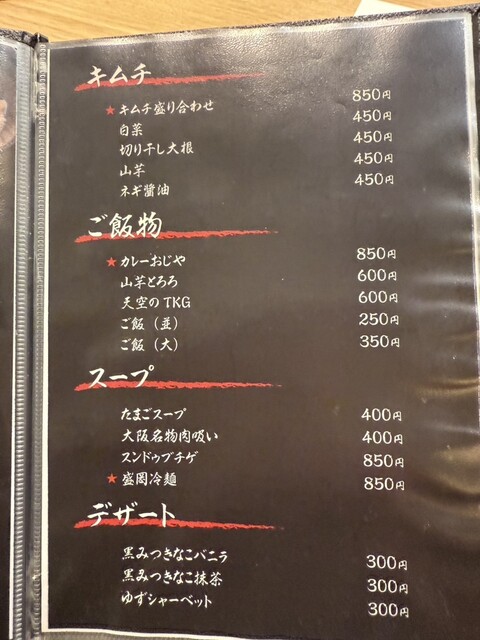 キムチ
★キムチ盛り合わせ 850円
白菜 450円
切り干し大根 450円
山芋 450円
ネギ醤油 450円
ご飯物
★カレーおじや 850円
山芋とろろ 600円
天空のTKG 600円
ご飯（並） 250円
ご飯（大） 350円
スープ
たまごスープ 400円
大阪名物肉吸い 400円
スンドゥブチゲ 850円
★盛岡冷麺 850円
デザート
黒みつきなこバニラ 300円
黒みつきなこ抹茶 300円
ゆずシャーベット 300円